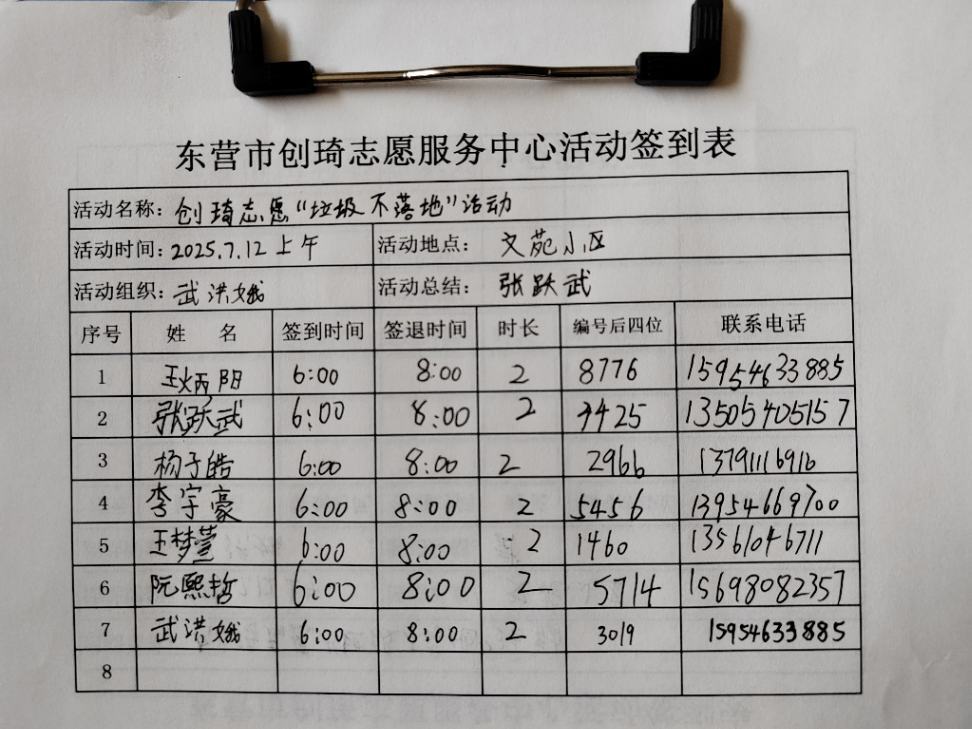 东营市创琦志愿服务中心活动签到表
活动名称: 创琦志愿“垃圾不落地”活动
活动时间: 2025.7.12上午 活动地点: 文苑小区
活动组织: 武洪娥 活动总结: 张跃武
序号 姓 名 签到时间 签退时间 时长 编号后四位 联系电话
1 王炳阳 6:00 8:00 2 8776 15954633885
2 张跃武 6:00 8:00 2 9425 13505405157
3 杨子皓 6:00 8:00 2 2966 13791116916
4 李宇豪 6:00 8:00 2 5456 13954669700
5 王梦萱 6:00 8:00 2 1460 13561046711
6 阮熙哲 6:00 8:00 2 5714 15698082357
7 武洪娥 6:00 8:00 2 3019 15954633885
8